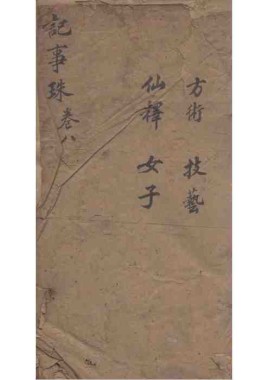 記事珠 卷八
方術 技藝
仙釋 女子